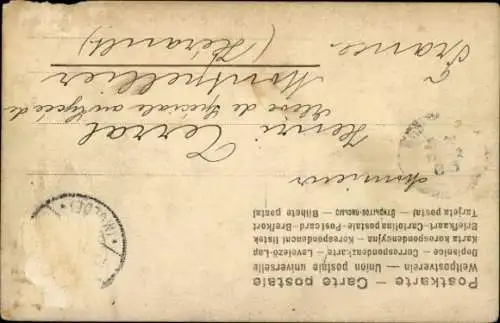 Postkarte — Carte postale
Weltpostverein — Union postale universelle
Dopisnice — Correspondenzkarte — Levelező-Lap
Karta korespondencyjna — Korespondencni listek
Briefkaart — Cartolina postale — Post-card — Brefkort
Tarjeta postal — Открытое письмо — Bilhete postal
Monsieur
Henri Terral
Elève de Spéciale au Lycée de
Montpellier
(Hérault)
France